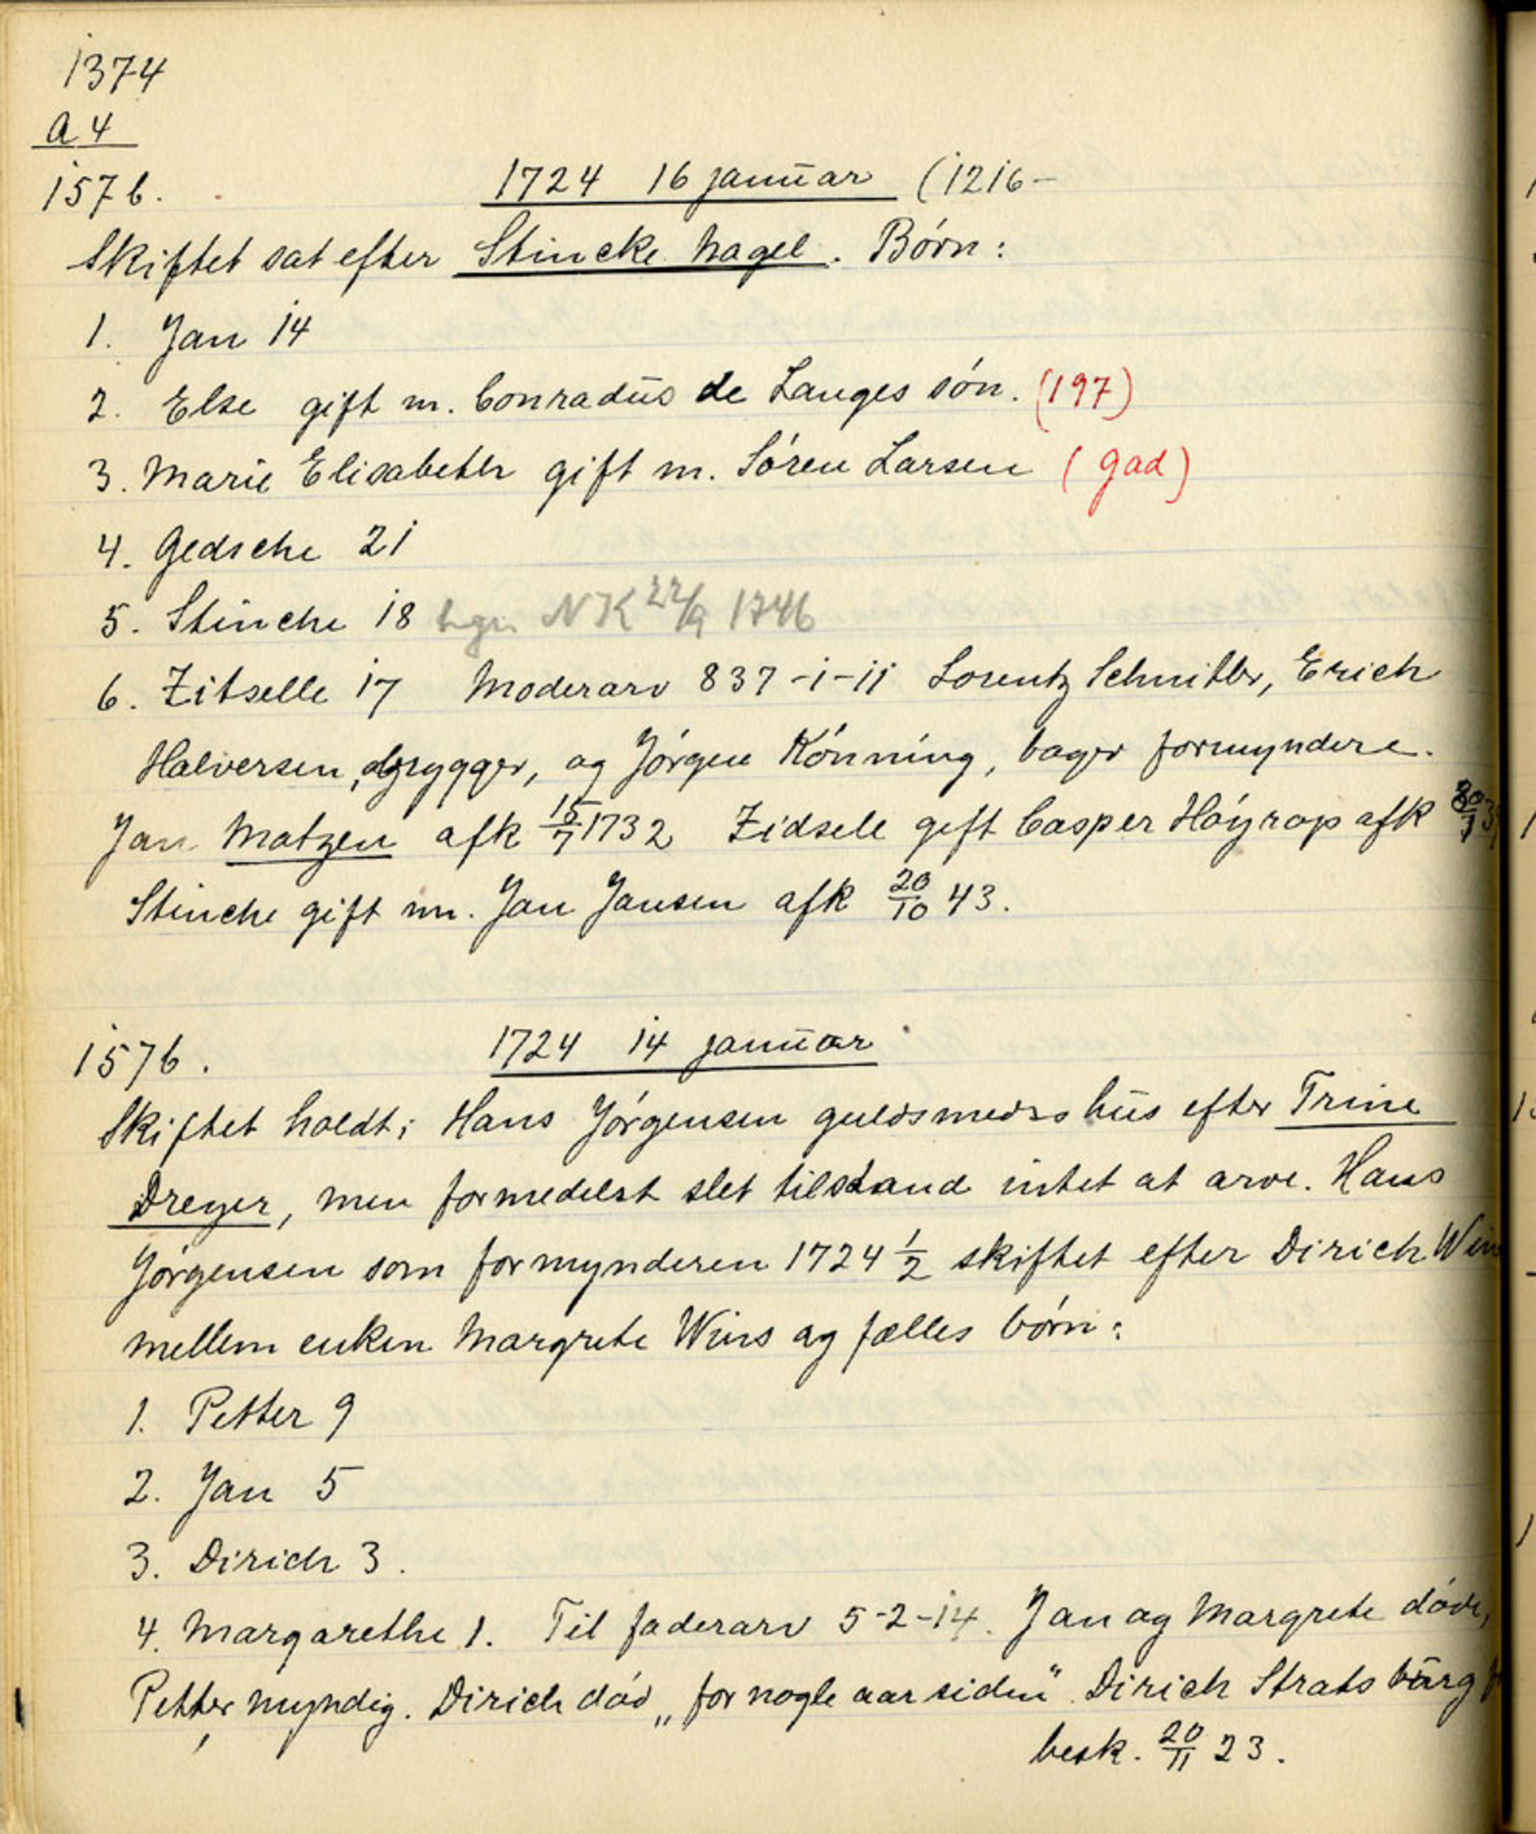 1374
A 4
1576.
1724 16 januar (1216-
Skiftet sat efter Stincke Nagel. Børn:
1. Jan 14
2. Else gift m. Conradus de Langes søn. (197)
3. Marie Elisabeth gift m. Søren Larsen (Gad)
4. Gedsche 21
5. Stinche 18 NK 22/9 1746
6. Zitselle 17 Moderarv 837-1-11 Lorentz Schnitler, Erich
Halversen, brygger, og Jørgen Kønning, bager formyndere.
Jan Matzen afk 15/7 1732 Zidsele gift Casper Høyrop afk
Stinche gift m. Jan Jansen afk 20/10 43.
1576.
1724 14 januar
Skiftet holdt i Hans Jørgensen guldsmeds hus efter Trine
Dreyer, men formedelst slet tilstand intet at arve. Hans
Jørgensen som formynderen 1724 1/2 skiftet efter Dirich
mellem enken Margrete Wins og fælles børn:
1. Petter 9
2. Jan 5
3. Dirich 3.
4. Margarethe 1. Til faderarv 5-2-14. Jan og Margrete døde,
Petter myndig. Dirich død „for nogle aar siden". Dirich Stratsburg
besk. 20/11 23.